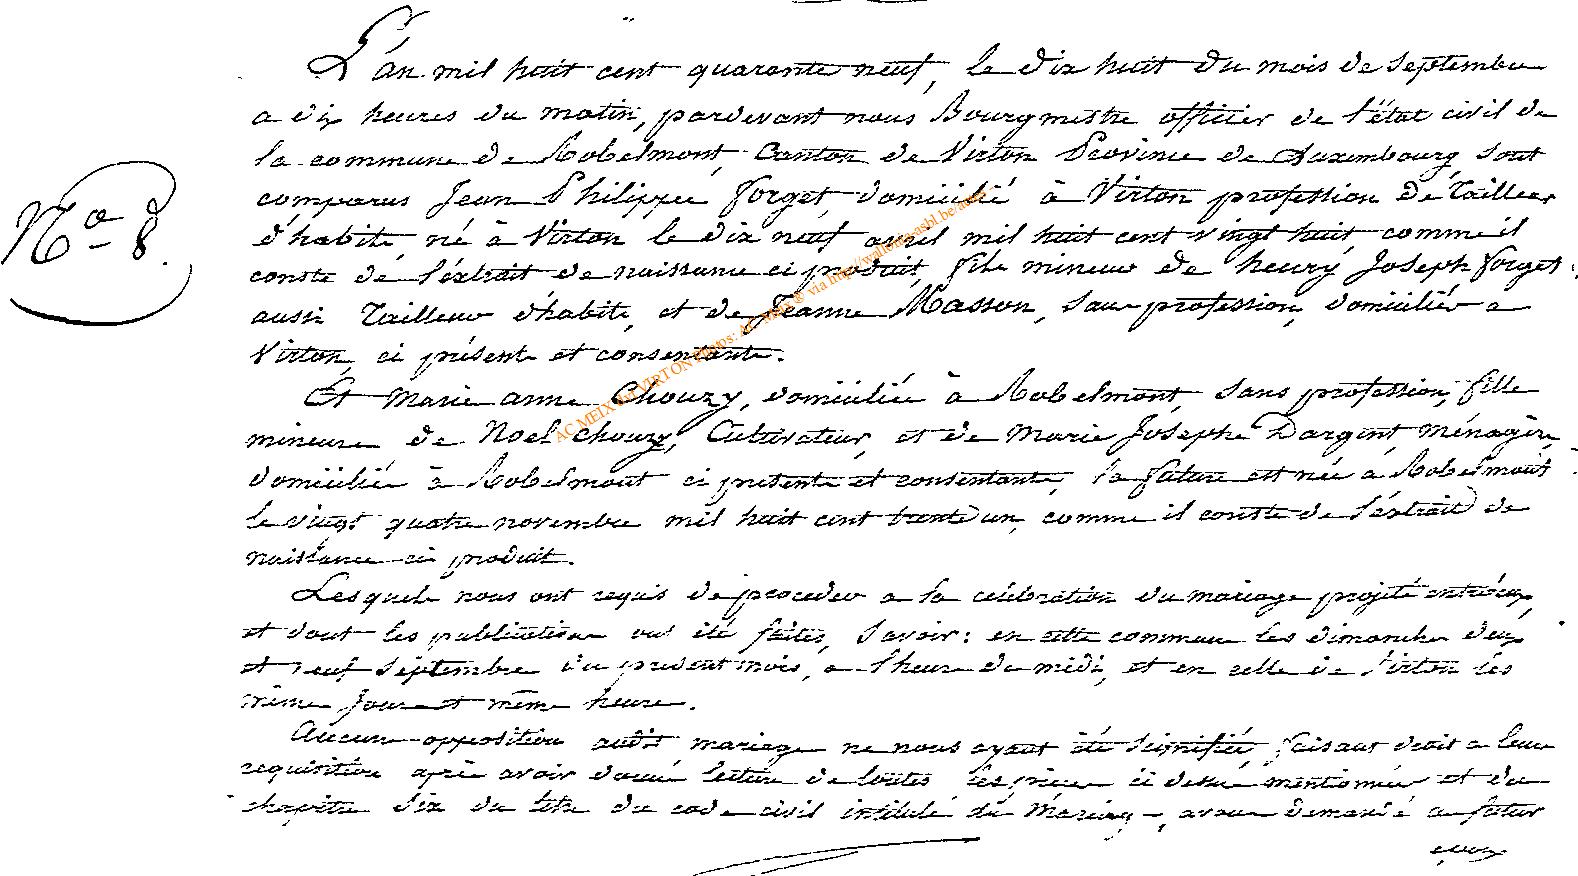 L'an mil huit cent quarante neuf, le dix huit du mois de Septembre
a dix heures du matin, pardevant nous Bourgmestre officier de l'état civil de
la commune de Robelmont, Canton de Virton Province de Luxembourg, sont
comparus Jean Philippe forget, domicilié à Virton profession de Tailleur
d'habits, né à Virton le dix neuf avril mil huit cent vingt huit, comme il
conste de l'éxtrait de naissance ci produit, fils mineur de henry Joseph forget
aussi Tailleur d'habits, et de Jeanne Masson, sans profession, domiciliés a
Virton, ci présents et consentants.
Et Marie anne Chouzy, domiciliée à Robelmont, sans profession, fille
mineure de Noel chouzy, Cultivateur, et de Marie Josephe Dargent, ménagère,
domiciliés à Robelmont ci présents et consentants, la future est née à Robelmont
le vingt quatre novembre mil huit cent trente un, comme il conste de l'éxtrait de
naissance ci produit.
Lesquels nous ont requis de proceder a la célébration du mariage projeté entréux,
et dont les publications ont été faites, Savoir: en cette commune les dimanches deux
et neuf Septembre du présent mois, a l'heure de midi, et en celle de Virton les
même jours et même heure.
Aucune opposition audit mariage ne nous ayant été Signifiée, faisant droit a leur
requisition après avoir donné lecture de toutes les pièces ci dessus mentionnées et du
chapitre Six du titre du code civil intitulé du Mariage, avons demandé au futur
époux
N° 8.
AC MEIX dvt VIRTON Photos: AC Meix & via http://wallonia-asbl.be/asbl/